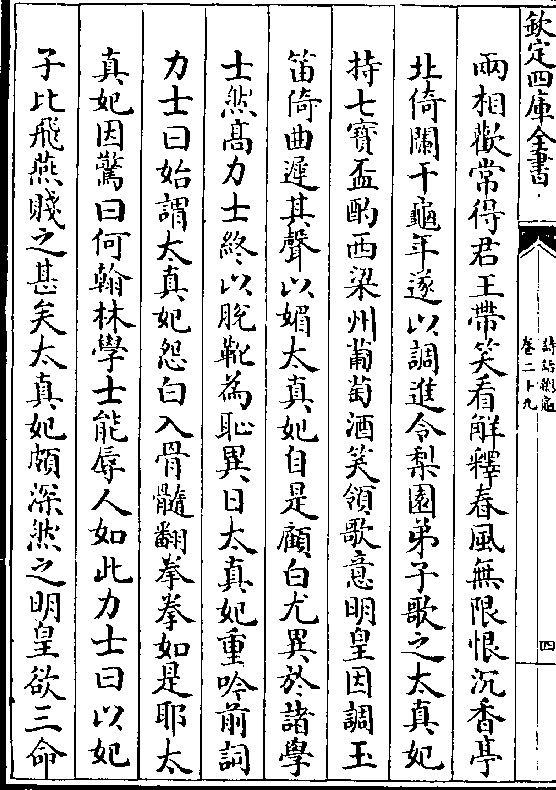 欽定四庫全書
詩話總龜
卷二十九
四
兩相歡常得君王帶笑看觧釋春風無限恨沉香亭
北倚闌干龜年遂以調進令梨園弟子歌之太真妃
持七寶盃酌西梁州葡萄酒笑領歌意明皇因調玉
笛倚曲遲其聲以媚太真妃自是顧白尤異於諸學
士然髙力士終以脫靴為恥異日太真妃重吟前詞
力士曰始謂太真妃怨白入骨髓翻拳拳如是耶太
真妃因驚曰何翰林學士能辱人如此力士曰以妃
子比飛燕賤之甚矣太真妃頗深然之明皇欲三命